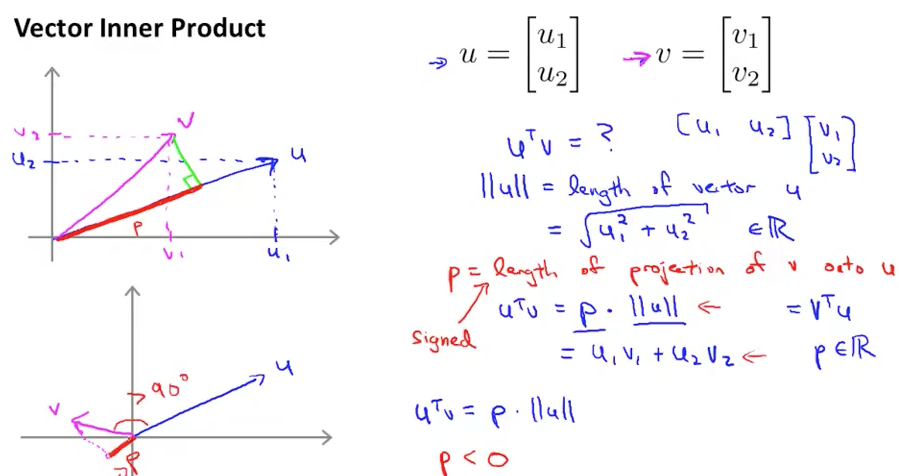 Vector Inner Product
→ u = [u₁ u₂] → v = [v₁ v₂]
v₂
v
u₂
u
p
v₁
u₁
uᵀv = ? [u₁ u₂] [v₁ v₂]
||u|| = length of vector u
= √(u₁² + u₂²) ∈ ℝ
p = length of projection of v onto u
signed
uᵀv = p · ||u|| ← = vᵀu
= u₁v₁ + u₂v₂ ← p ∈ ℝ
u
> 90°
v
p
uᵀv = p · ||u||
p < 0